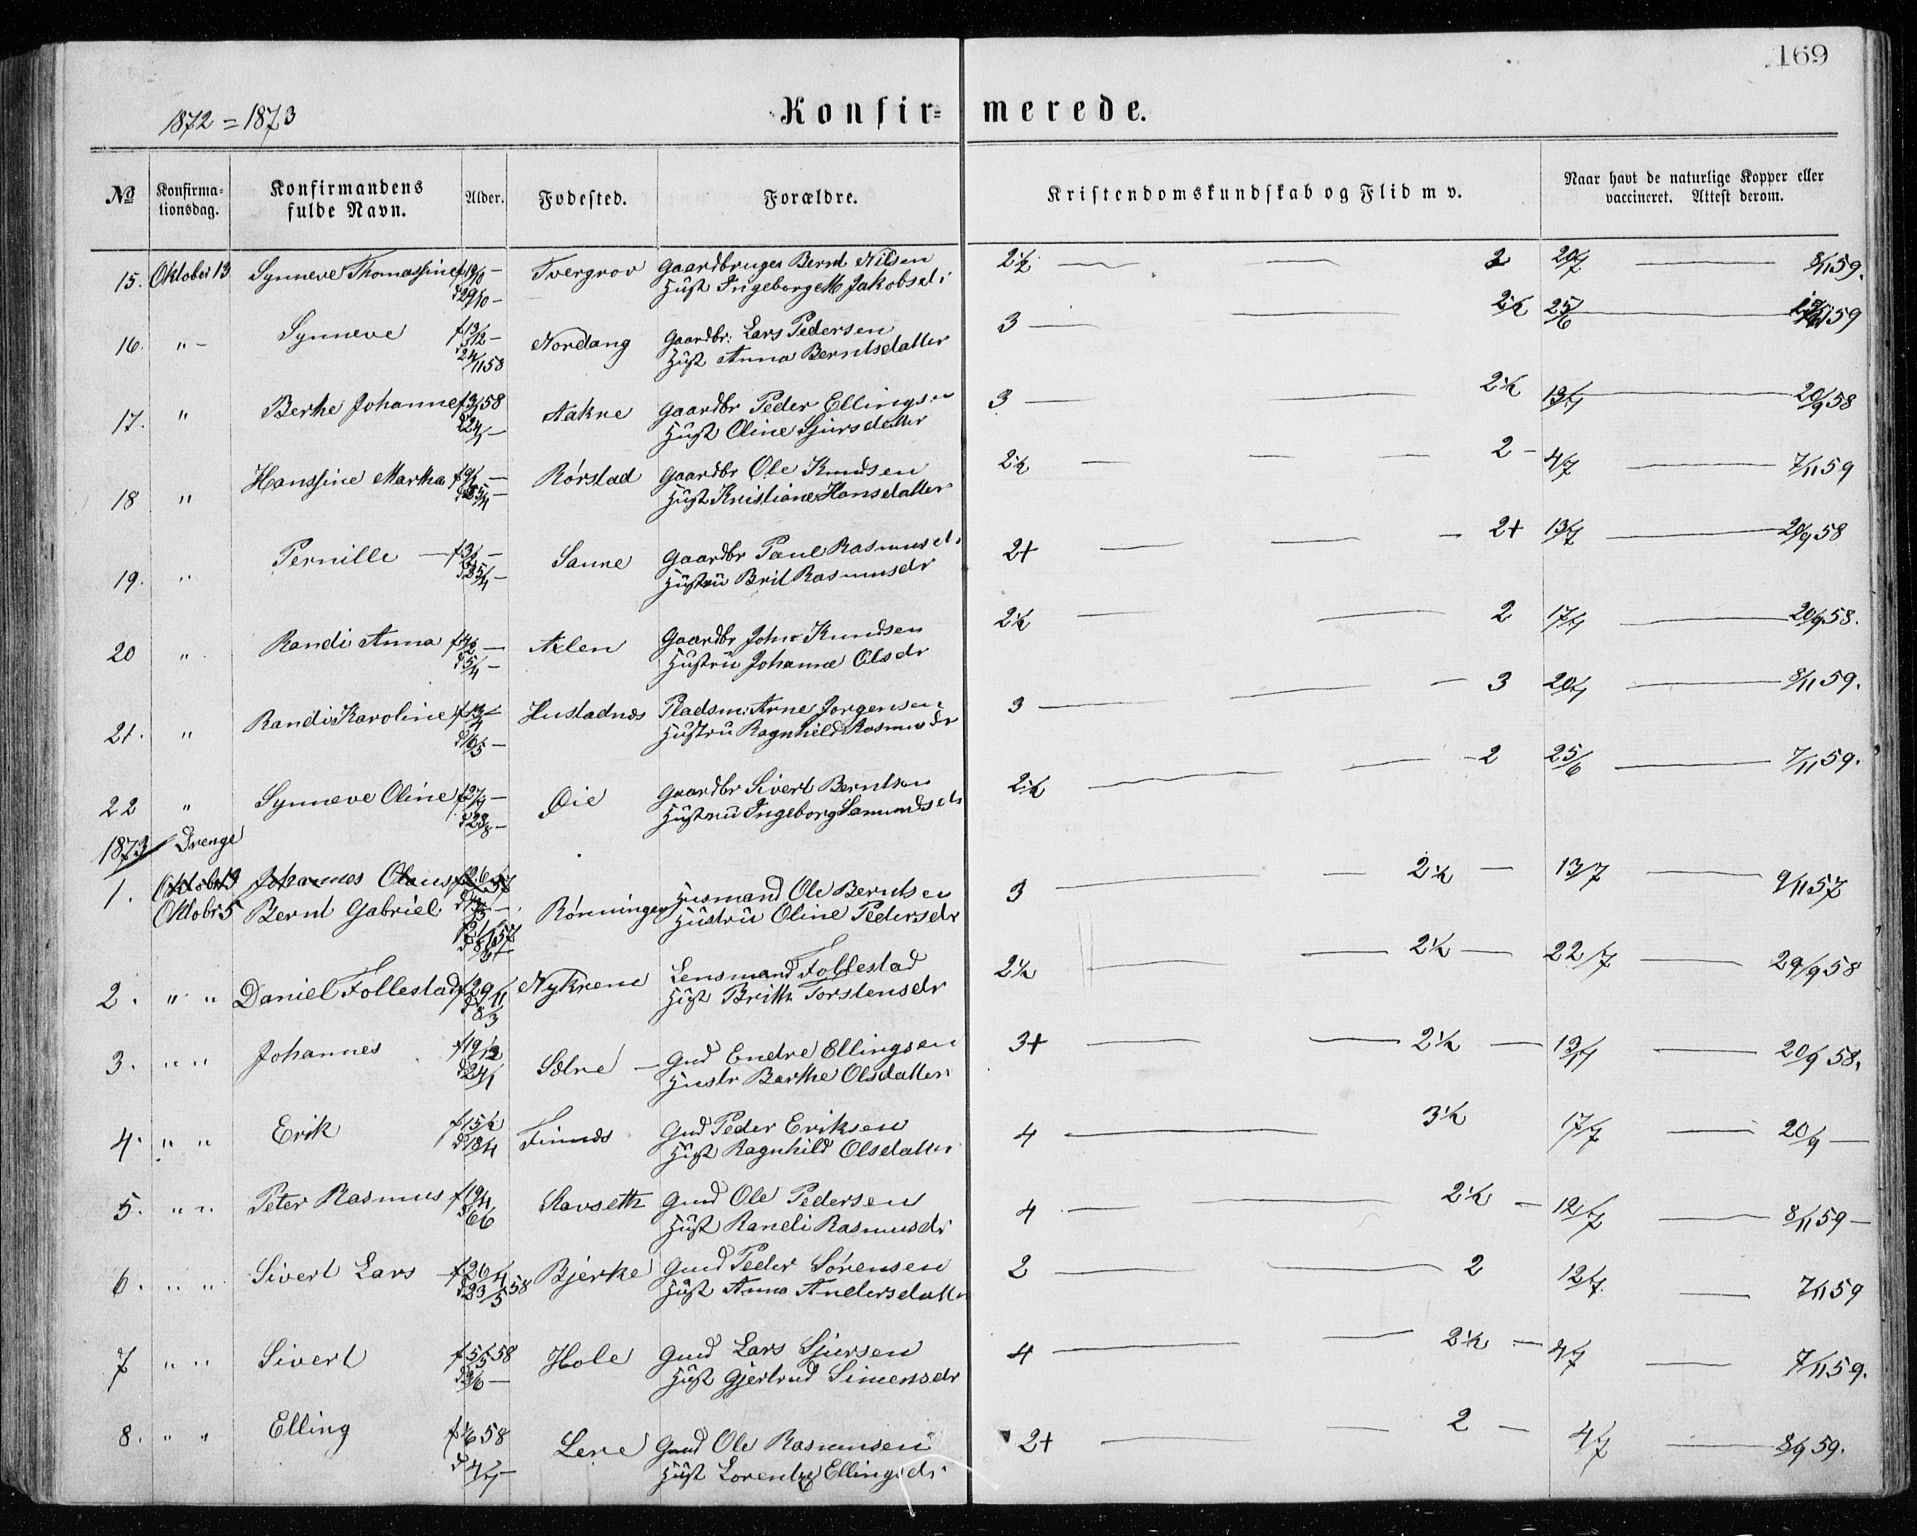 169
1872 = 1873
Konfir= merede.
No
Konfirma-tionsdag.
Konfirmandens fulde Navn.
Alder.
Fødested.
Forældre.
Kristendomskundskab og Flid m v.
Naar havt de naturlige Kopper eller vaccineret. Attest derom.
15. Oktober 13 Synneve Thomassine f 19/10 – Tvergrov Gaardbruger Bernt Nilsen 2½ — — 2 20/7 — 8/11 59.
d 29/10 – Hust Ingeborg M Jakobsd:
16. " – Synneve f 13/12 – Nordang Gaardbr: Lars Pedersen 3 — — 2½ 25/6 — 59
d 24/11 58 Hust Anna Berntsdatter
17. " Berthe Johanne 58 Aakne Gaardbr Peder Ellingsen 3 — — 2½ 13/7 — 20/9 58
Hust Oline Sjursdatter
18 " Hanssine Martha Rørstad Gaardbr Ole Knudsen 2½ — — — 2 – 4/7 — 7/11 59
d 25/4 – Hust Kristiane Hansdatter
19. " Pernille — Saure Gaardbr Paul Rasmusd: 2+ — — – 2+ 13/7 — 20/9 58
d 25/4 – Hustru Brit Rasmusdr
20 " Randi Anna Aalen Gaardbr John Knudsen 2½ — — 2 17/7 — 20/9 58.
d 5/4 – Hustru Johanne Olsdr
21. " Randi Karoline Hustadnæs Pladsm: Arne Jørgensen 3 — — – 3 20/7 — 8/11 59.
d 16/5 – Hustru Ragnhild Rasmusdr
22 " Synneve Oline Øie Gaardbr Sivert Berntsen 2½ — — -2 25/6 — 7/11 59.
d 29/8 – Hustru Ingeborg
1873 Drenge
1. Oktober 13 Johannes Olaus 57
Oktobr 5 Bernt Gabriel Rønningen Husmand Ole Berntsen 3 — 2½ — 13/7 — 9/11 57
Hustru Oline Pedersdr
2. " " Daniel Follestad f 29/11 Nykrene Lensmand Follestad 2½ — — 2½ — 22/7 — 29/9 58
d 8/3 Hust Brith Torstensdr
3. " " Johannes f 19/12 Sølre — Gmd Endre Ellingsen 3+ — — 2½ — 13/7 — 20/9 58.
d 24/1 Hustr Berthe Olsdatter
4. " " Erik f 15/2 Finnæs Gmd Peder Eriksen 4 — 3½ 17/7 — 20/9 —
d 18/4 Hust Ragnhild Olsdatter
5. " " Peter Rasmus f 19/4 Savseth Gmd Ole Pedersen 4 — — 2½ – 12/7 — 8/11 59 –
d 6/6 Hust Randi Rasmusdr
6. " " Sivert Lars f 26/4 Bjerke Gmd Peder Sørensen 2 — — 2 12/7. — 7/11 59
d 23/5 58 Hust Anna Andersdatter
7 " " Sivert f 5/5 58 Hole Gmd Lars Sjursen 4 — — 2½ – 4/7 — 7/11 59.
Hust Gjertrud Simensdr
8. " " Elling 58 Lene Gmd Ole Rasmusen 2+ — — 2 — 4/7 — 8/9 59.
d 4/7 – Hust Lorentze Ellingsd: